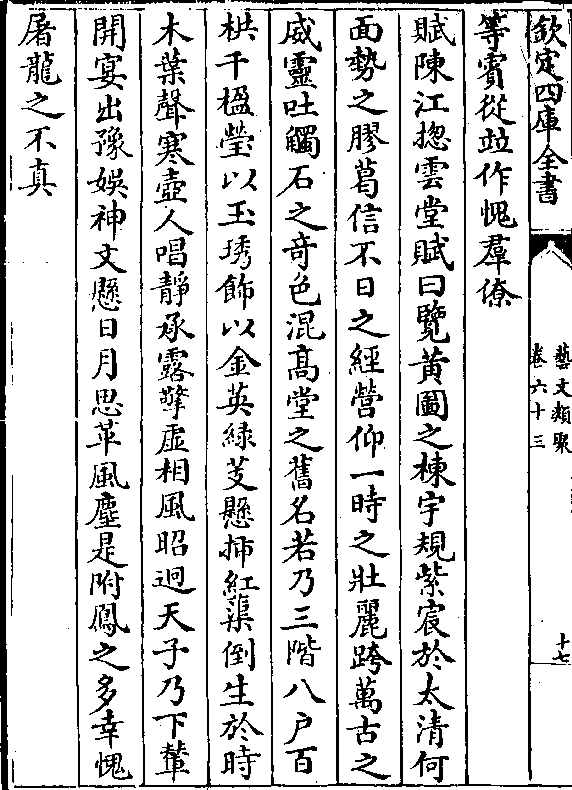 欽定四庫全書
藝文類聚
卷六十三
十七
等賓從竝作愧羣僚
賦陳江揔雲堂賦曰覽黃圖之棟宇規紫宸於太清何
面勢之膠葛信不日之經營仰一時之壯麗跨萬古之
威靈吐觸石之奇色混髙堂之舊名若乃三階八户百
栱千楹瑩以玉琇飾以金英緑芰懸揷紅蕖倒生於時
木葉聲寒壺人唱靜承露擎虛相風昭迥天子乃下輦
開宴出豫娛神文懸日月思革風塵是附鳳之多幸愧
屠龍之不真